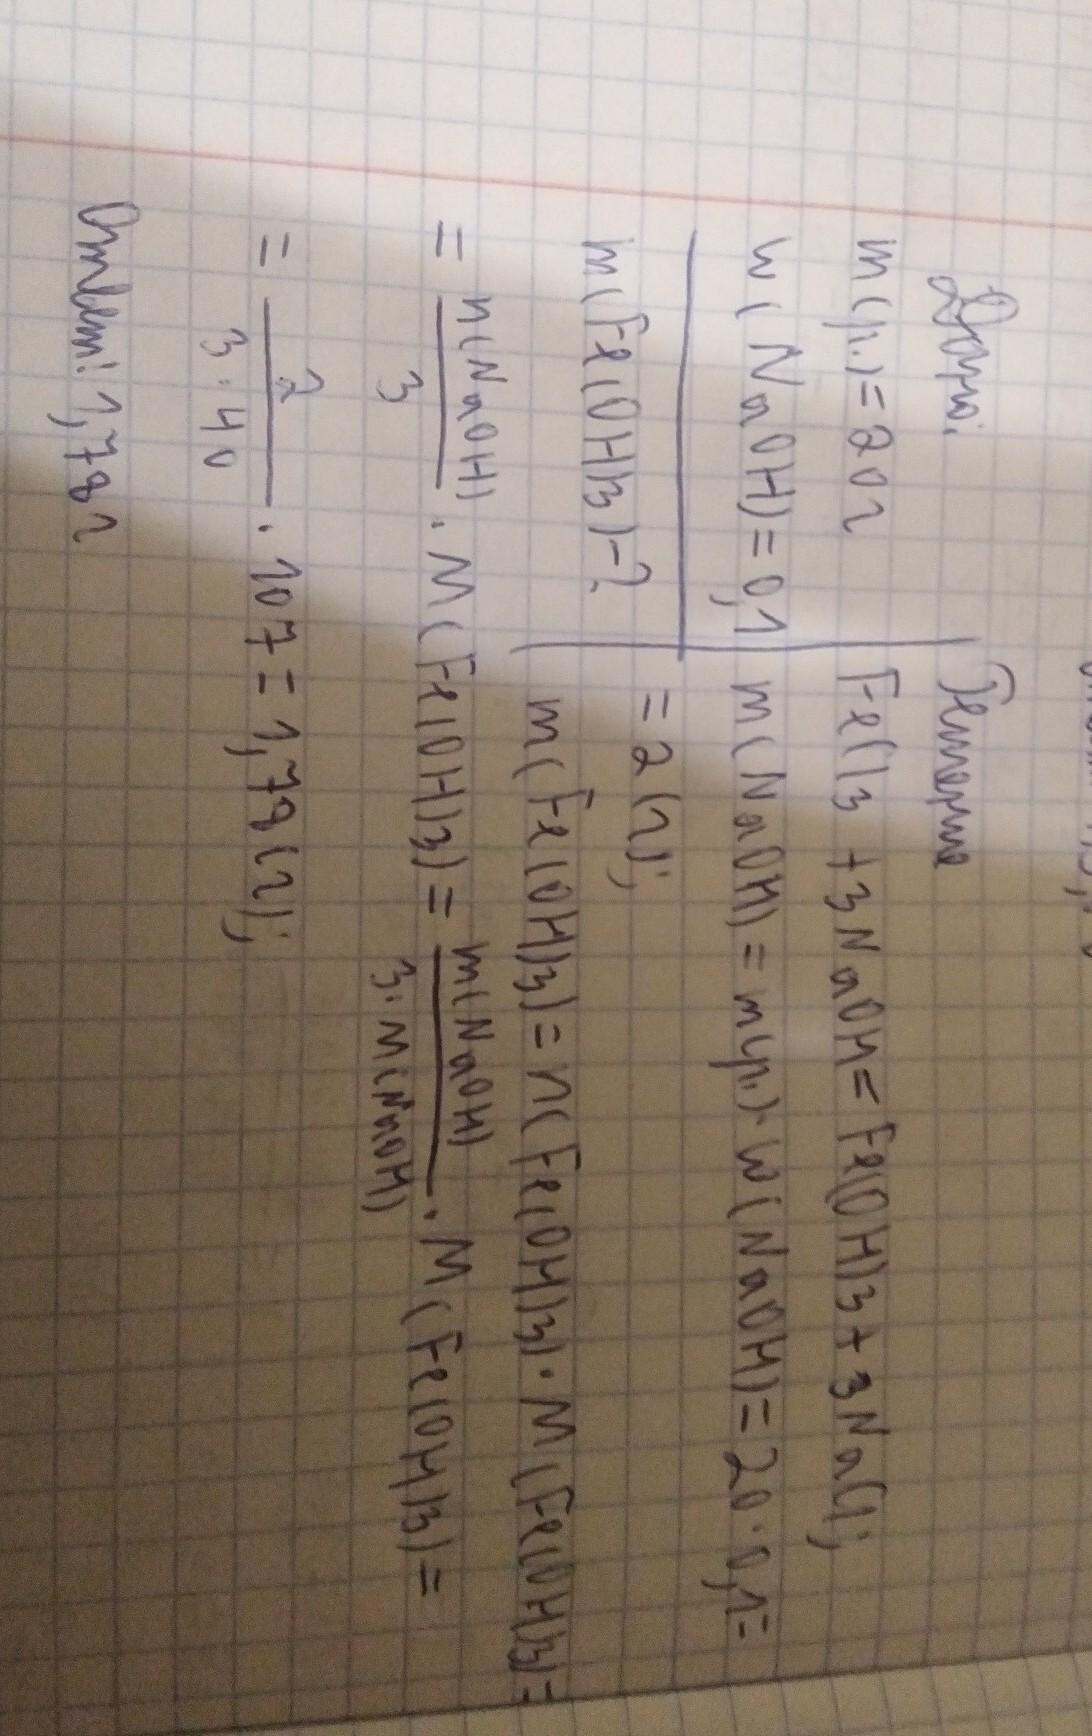 Дано:
m(р.)=20г
w(NaOH)=0,1
m(Fe(OH)3)-?
Решение
FeCl3+3NaOH=Fe(OH)3+3NaCl;
m(NaOH)=m(р.)·w(NaOH)=20·0,1=
=2(г);
m(Fe(OH)3)=n(Fe(OH)3)·M(Fe(OH)3)=
= n(NaOH)/3 · M(Fe(OH)3)= m(NaOH)/3·M(NaOH) · M(Fe(OH)3)=
= 2/3·40 · 107=1,78(г);
Ответ: 1,78г